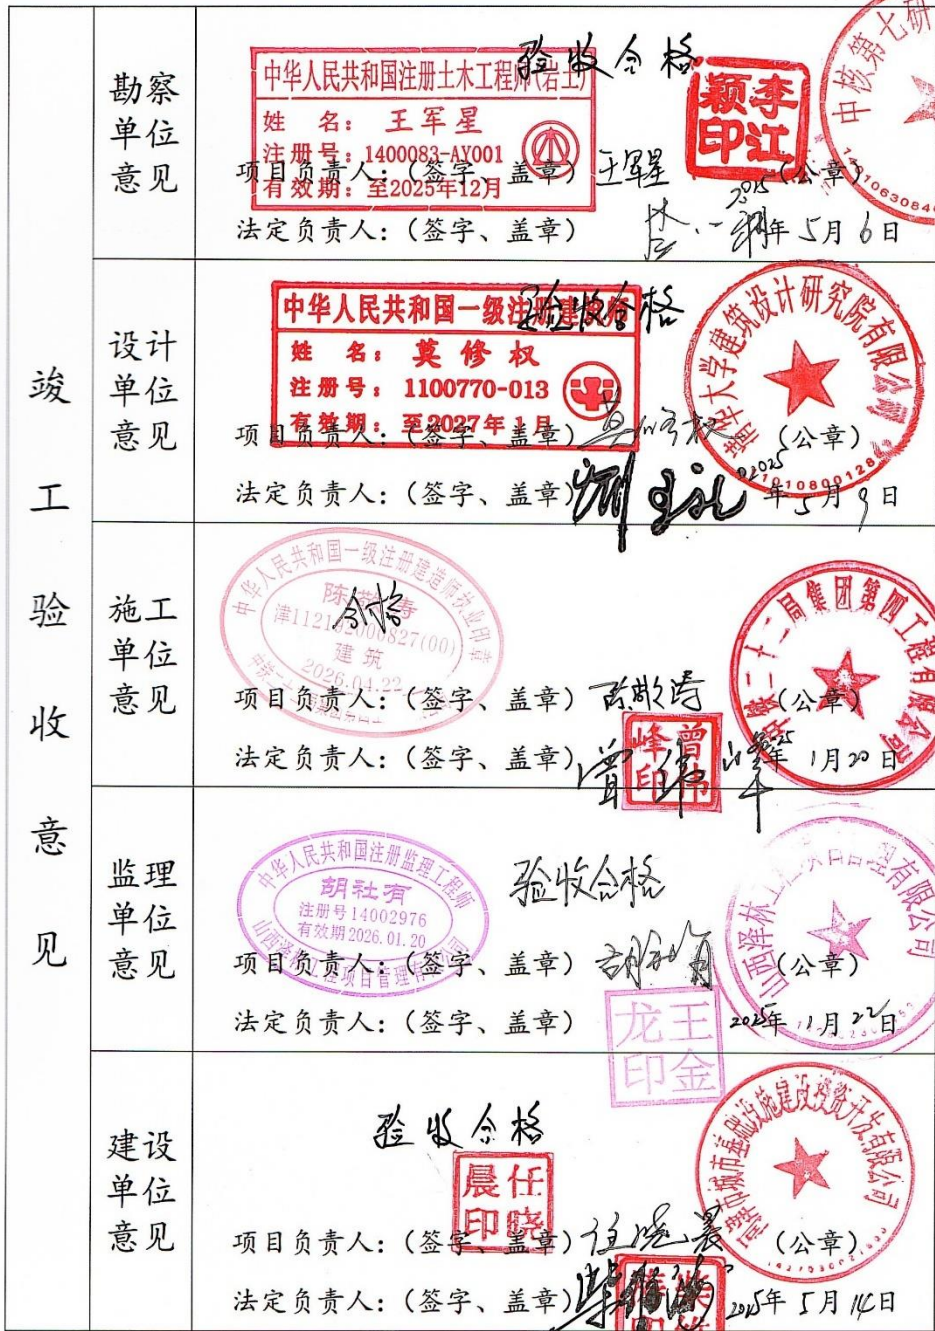 竣工验收意见
勘察单位意见
验收合格
中华人民共和国注册土木工程师(岩土)
姓 名：王军星
注册号：1400083-AY001
有效期：至2025年12月
李江颖印
中核第七研
项目负责人：（签字、盖章）王军星 （公章）
法定负责人：（签字、盖章） 2025年5月6日
设计单位意见
验收合格
中华人民共和国一级注册建筑师
姓 名：莫修权
注册号：1100770-013
有效期：至2027年1月
清华大学建筑设计研究院有限公司
项目负责人：（签字、盖章）莫修权 （公章）
法定负责人：（签字、盖章） 2025年5月9日
施工单位意见
合格
中华人民共和国一级注册建造师执业印章
建筑
2026.04.22
二十二局集团第四工程有限公司
曾伟峰印
项目负责人：（签字、盖章） （公章）
法定负责人：（签字、盖章）曾伟峰 2025年1月20日
监理单位意见
验收合格
中华人民共和国注册监理工程师
胡社有
注册号14002976
有效期2026.01.20
山西泽林工程项目管理有限公司
项目负责人：（签字、盖章）胡社有 （公章）
法定负责人：（签字、盖章） 2025年1月22日
王金龙印
建设单位意见
验收合格
任晓晨印
市城市基础设施建设投资开发有限公司
项目负责人：（签字、盖章）任晓晨 （公章）
法定负责人：（签字、盖章） 2025年5月14日